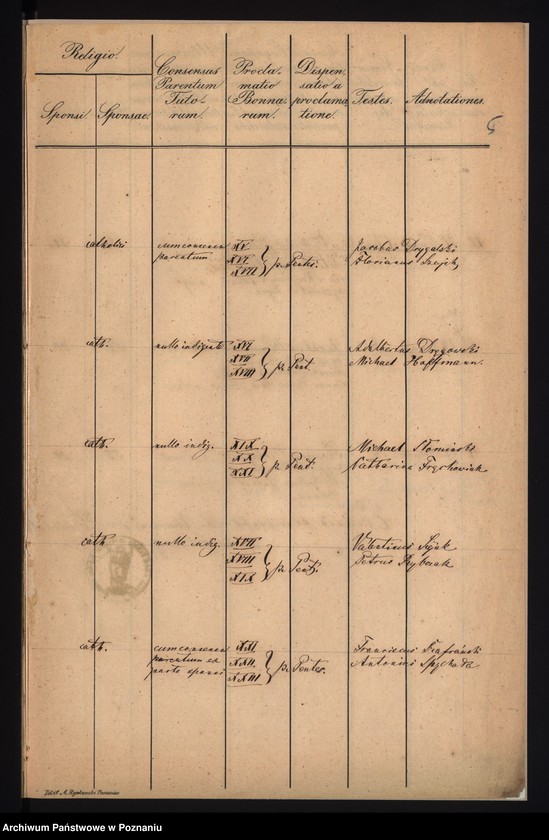 Religio.
Sponsi. Sponsae.
Consensus
Parentum
Tuto-
rum.
Procla-
matio
Bonna-
rum.
Dispen-
satio a
proclama
tione.
Testes.
Adnotationes.
5
catholici
cum consensu
parentum
XV.
XVI
XVII
p. Pentec.
Jacobus Drygalski
Florianus
cath.
nullo indigente
XVI
XVII
XVIII
p. Pent.
Adalbertus
Michael Hoffmann.
cath.
nullo indig.
XIX
XX
XXI
p. Pent.
Michael
Catharina
cath.
nullo indig.
XVII
XVIII
XIX
p. Pent.
Valentinus
Petrus Rybczak
cath.
cum consensu
parentum ex
parte sponsi
XXI
XXII
XXIII
p. Pentec.
Franciscus
Antonius Spychała
Archiwum Państwowe w Poznaniu